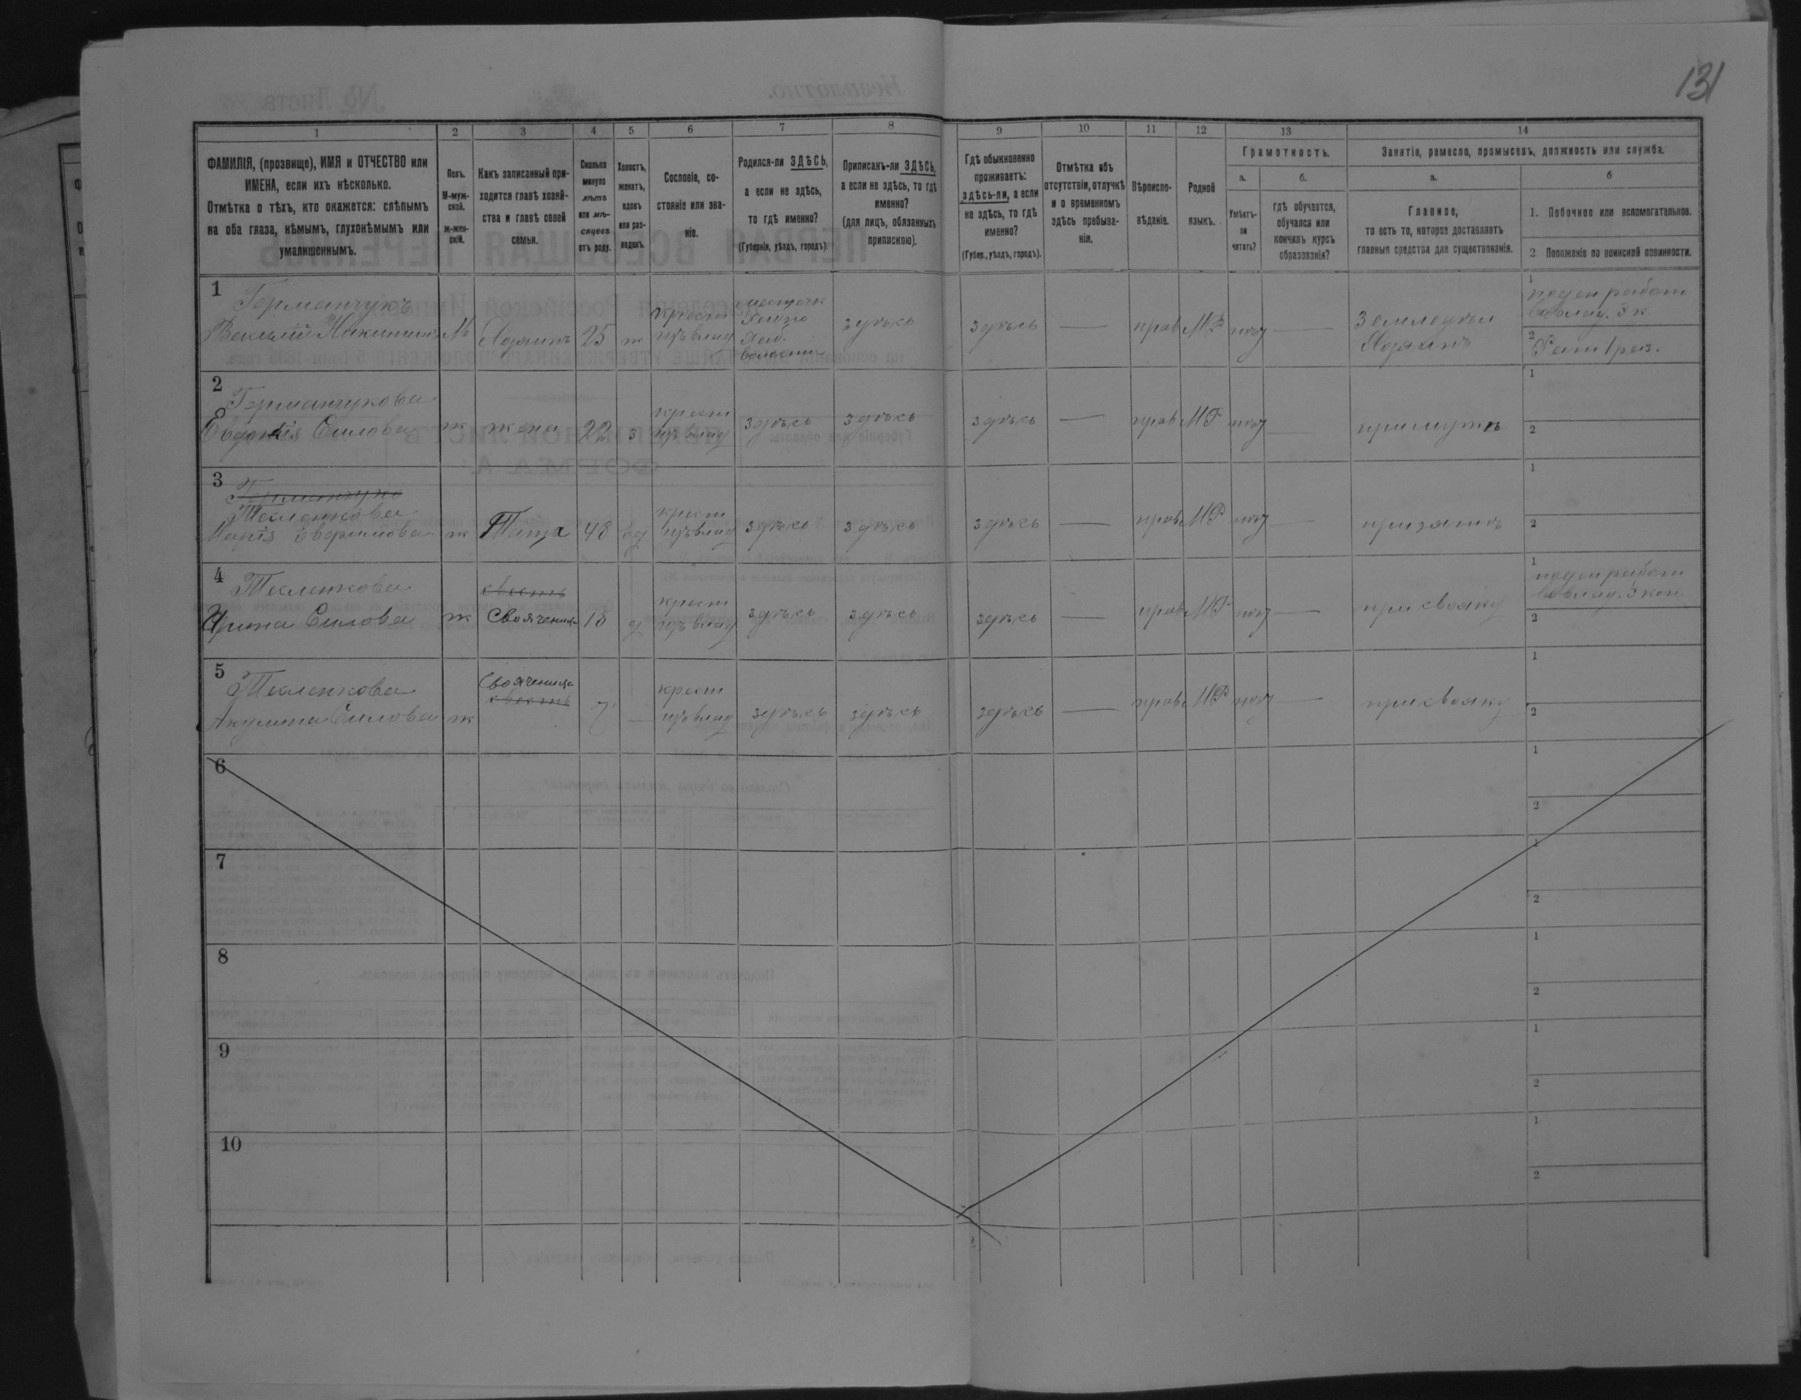 131
1 2 3 4 5 6 7 8 9 10 11 12 13 14
ФАМИЛІЯ, (прозвище), ИМЯ и ОТЧЕСТВО или
ИМЕНА, если ихъ нѣсколько.
Отмѣтка о тѣхъ, кто окажется: слѣпымъ
на оба глаза, нѣмымъ, глухонѣмымъ или
умалишеннымъ.
Полъ.
М-муж-
ской.
ж-жен-
скій.
Какъ записанный при-
ходится главѣ хозяй-
ства и главѣ своей
семьи.
Сколько
минуло
лѣтъ
или мѣ-
сяцевъ
отъ роду.
Холостъ,
женатъ,
вдовъ
или раз-
веденъ.
Сословіе, со-
стояніе или зва-
ніе.
Родился-ли ЗДѢСЬ,
а если не здѣсь,
то гдѣ именно?
(Губернія, уѣздъ, городъ).
Приписанъ-ли ЗДѢСЬ,
а если не здѣсь, то гдѣ
именно?
(для лицъ, обязанныхъ
припискою).
Гдѣ обыкновенно
проживаетъ:
здѣсь-ли, а если
не здѣсь, то гдѣ
именно?
(Губер., уѣздъ, городъ).
Отмѣтка объ
отсутствіи, отлучкѣ
и о временномъ
здѣсь пребыва-
ніи.
Вѣроиспо-
вѣданіе.
Родной
языкъ.
Грамотность.
а.
Умѣетъ-
ли
читать?
б.
гдѣ обучается,
обучался или
кончилъ курсъ
образованія?
Занятіе, ремесло, промыселъ, должность или служба.
а.
Главное,
то есть то, которое доставляетъ
главныя средства для существованія.
б
1. Побочное или вспомогательное.
2 Положеніе по воинской повинности.
1
Германчукъ
Василій Никитинъ М Хозяинъ 25 ж
крест
изъ влад
Ялт.
волости
здѣсь здѣсь — прав МР нѣт —
Земледѣл
Хозяинъ
1
поден работ
2
Рат 1 раз.
2
Германчукова
Евдокія Силова ж жена 22 з
крест
изъ влад
здѣсь здѣсь здѣсь — прав МР нѣт — при мужѣ
1
2
3
Теленкова
Марія Ефримова ж Теща 48 вд
крест
изъ влад
здѣсь здѣсь здѣсь — прав МР нѣт — при зятѣ
1
2
4
Теленкова
Ирина Силова ж Свояченица 18 д
крест
изъ влад
здѣсь здѣсь здѣсь — прав МР нѣт — при свояку
1
поден работ
2
5
Теленкова
Акулина Силова ж
Свояченица
7 —
крест
изъ влад
здѣсь здѣсь здѣсь — прав МР нѣт — при свояку
1
2
6
1
2
7
1
2
8
1
2
9
1
2
10
1
2